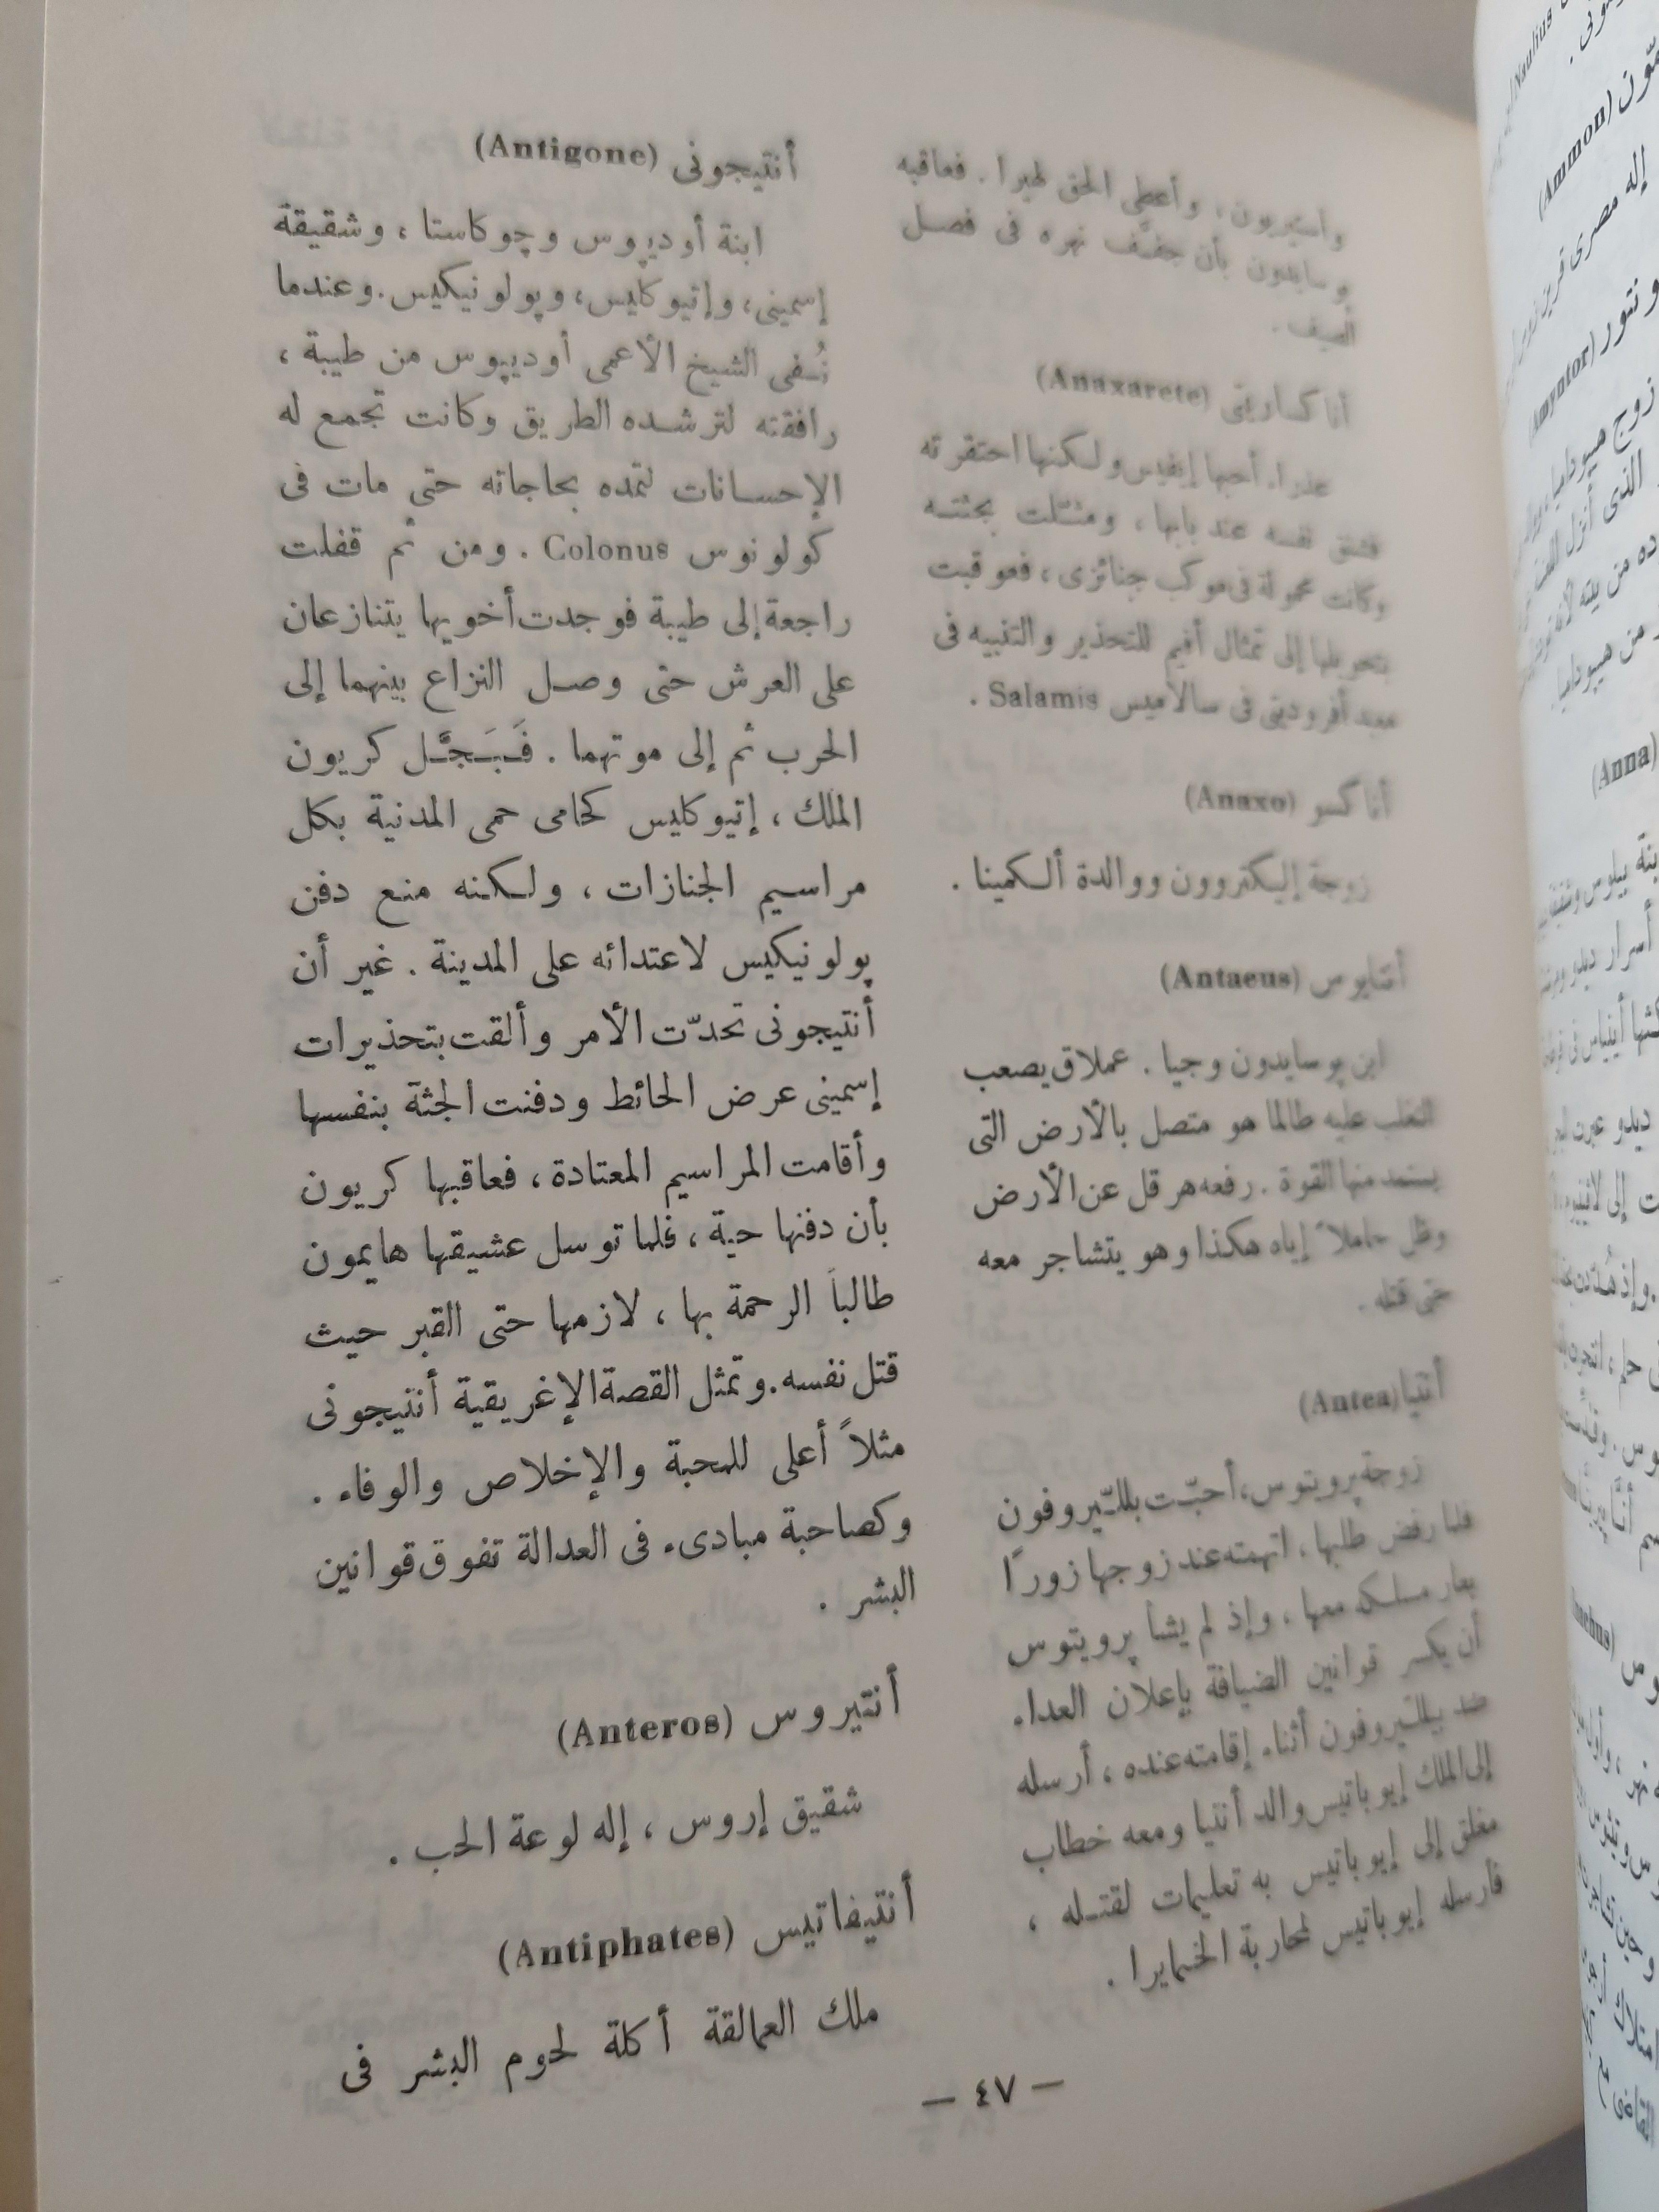 وأستيريون، وأعطى الحق لهيرا. فعاقبه
پوسايدون بأن جفـّف نهره فى فصل
الصيف.
أناكساريتى (Anaxarete)
عذراء أحبها إيفيس ولكنها احتقرته
فشنق نفسه عند بابها، ومثـّلت بجثته
وكانت محمولة فى موكب جنائزى، فعوقبت
بتحويلها إلى تمثال أقيم للتحذير والتنبيه فى
معبد أفروديتى فى سالاميس Salamis.
أناكسو (Anaxo)
زوجة إليكتروون ووالدة ألكمينا.
أنتايوس (Antaeus)
ابن پوسايدون وجيا. عملاق يصعب
التغلب عليه طالما هو متصل بالأرض التى
يستمد منها القوة. رفعه هرقل عن الأرض
وظل حاملاً إياه هكذا وهو يتشاجر معه
حتى قتله.
أنتيا (Antea)
زوجة پرويتوس، أحبّت بللـّيروفون
فلما رفض طلبها، اتهمته عند زوجها زورًا
بعار مسلكه معها. وإذ لم يشأ پرويتوس
أن يكسر قوانين الضيافة بإعلان العداء
ضد بيللـّيروفون أثناء إقامته عنده، أرسله
إلى الملك إيوباتيس والد أنتيا ومعه خطاب
مغلق إلى إيوباتيس به تعليمات لقتله،
فأرسله إيوباتيس لمحاربة الخمايرا.
أنتيجونى (Antigone)
ابنة أوديپوس وچوكاستا، وشقيقة
إسمينى، وإتيوكليس، وپولونيكيس. وعندما
نُفى الشيخ الأعمى أوديپوس من طيبة،
رافقته لترشده الطريق وكانت تجمع له
الإحسانات لتمده بحاجاته حتى مات فى
كولونوس Colonus. ومن ثم قفلت
راجعة إلى طيبة فوجدت أخويها يتنازعان
على العرش حتى وصل النزاع بينهما إلى
الحرب ثم إلى موتهما. فَبَجَّل كريون
الملك، إتيوكليس كحامى حمى المدنية بكل
مراسيم الجنازات، ولكنه منع دفن
پولونيكيس لاعتدائه على المدينة. غير أن
أنتيجونى تحدّت الأمر وألقت بتحذيرات
إسمينى عرض الحائط ودفنت الجثة بنفسها
وأقامت المراسيم المعتادة، فعاقبها كريون
بأن دفنها حية، فلما توسل عشيقها هايمون
طالباً الرحمة بها، لازمها حتى القبر حيث
قتل نفسه. وتمثل القصة الإغريقية أنتيجونى
مثلاً أعلى للمحبة والإخلاص والوفاء.
وكصاحبة مبادىء فى العدالة تفوق قوانين
البشر.
أنتيروس (Anteros)
شقيق إروس، إله لوعة الحب.
أنتيفاتيس (Antiphates)
ملك العمالقة أكلة لحوم البشر فى
— ٤٧ —
(Ammon)
إله مصرى قرين
(Amyntor)
(Anna)